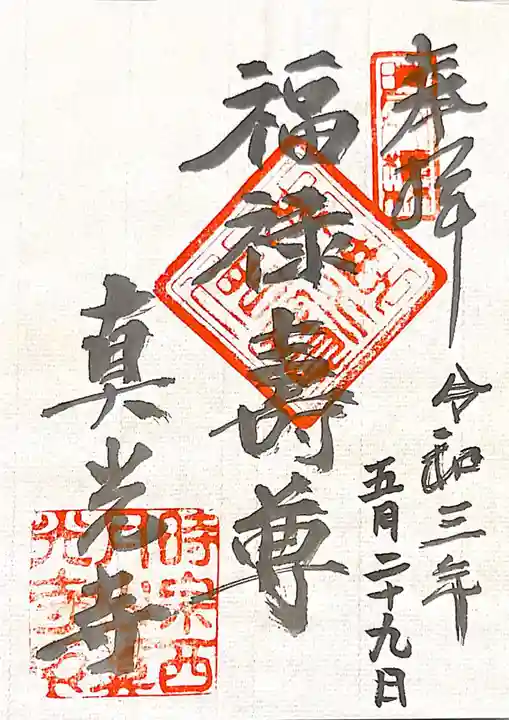 奉拝
令和三年
五月二十九日
福禄寿尊
真光寺
時宗西